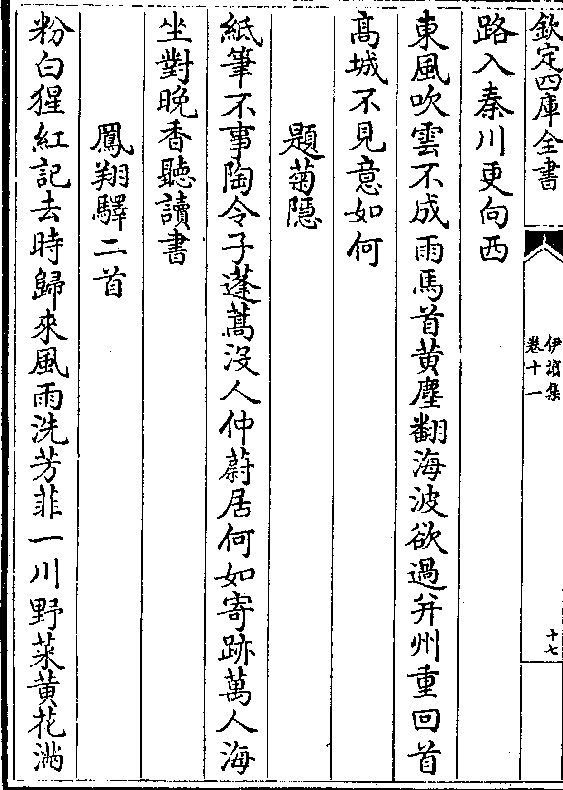 欽定四庫全書
伊濱集
卷十一
十七
路入秦川更向西
東風吹雲不成雨馬首黄塵翻海波欲過并州重回首
髙城不見意如何
題菊隠
紙筆不事陶令子蓬蒿没人仲蔚居何如寄跡萬人海
坐對晩香聽讀書
鳳翔驛二首
粉白猩紅記去時歸來風雨洗芳菲一川野菜黄花滿